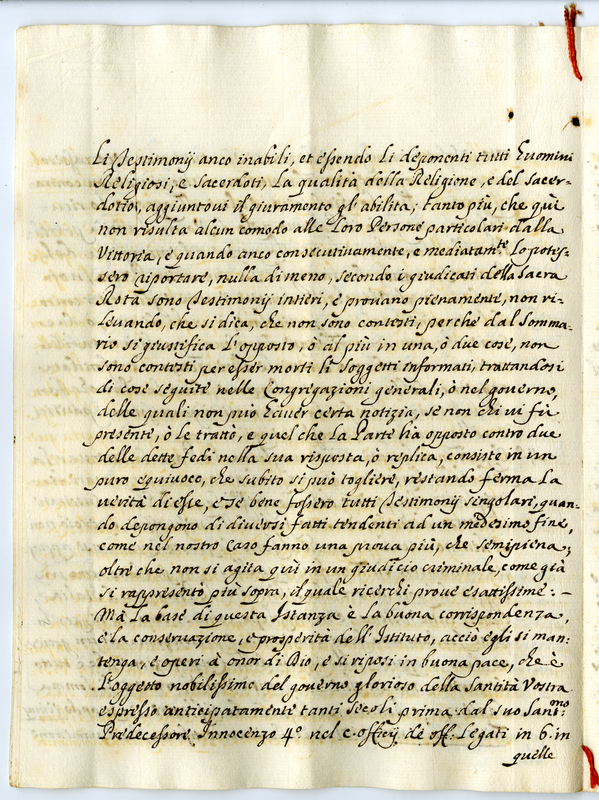 Li Testimonij anco inabili, et essendo li deponenti tutti huomini
Religiosi, e Sacerdoti, La qualità della Religione, e del sacer-
dotio, aggiuntovi il giuramento gl'abilita; tanto più, che qui
non risulta alcun comodo alle loro Persone particolari dalla
Vittoria, e quando anco consecutivamente, e mediatam.te Lo potes-
sero riportare, nulla di meno, secondo i giudicati della Sacra
Rota sono Testimonij intieri, e provano pienamente, non ri-
levando, che si dica, che non sono contesti, perche dal Somma-
rio si giustifica l'opposto, ò al più in una, ò due cose, non
sono contesti per esser morti li soggetti informati, trattandosi
di cose seguite nelle Congregazioni generali, ò nel governo,
delle quali non può haver certa notizia, se non chi vi fù
presente, ò le trattò, e quel che la Parte hà opposto contro due
delle dette fedi nella sua risposta, ò replica, consiste in un
puro equivoco, che subito si può togliere, restando ferma la
verità di esse, e se bene fossero tutti Testimonij singolari, quan-
do depongono di diversi fatti tendenti ad un medesimo fine,
come nel nostro caso fanno una prova più, che semipiena;
oltre che non si agita quì in un giudicio criminale, come già
si rappresentò più sopra, il quale ricerchi prove esattissime: –
Mà La base di questa Istanza è La buona corrispondenza,
e la conservazione, e prosperità dell'Istituto, acciò egli si man-
tenga, e operi à onor di Dio, e si riposi in buona pace, che è
l'oggetto nobilissimo del governo glorioso della Santità Vostra
espresso anticipatamente tanti secoli prima dal suo Sant.mo
Predecessore Innocenzo 4.º nel c. officij de off. Legati in 6. in
quelle